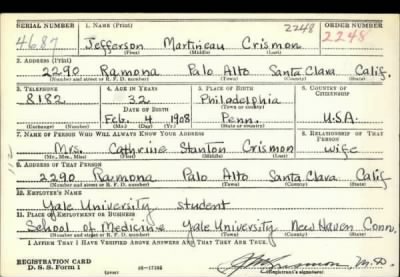 SERIAL NUMBER 1. NAME (Print) 2248 ORDER NUMBER
4687 Jefferson Martineau Crismon 2248
(First) (Middle) (Last)
2. ADDRESS (Print)
2290 Ramona Palo Alto Santa Clara Calif.
(Number and street or R. F. D. number) (Town) (County) (State)
3. TELEPHONE 4. AGE IN YEARS 5. PLACE OF BIRTH 6. COUNTRY OF CITIZENSHIP
8182 32 Philadelphia
DATE OF BIRTH (Town or county)
Feb. 4 1908 Penn. U.S.A.
(Exchange) (Number) (Mo.) (Day) (Yr.) (State or country)
7. NAME OF PERSON WHO WILL ALWAYS KNOW YOUR ADDRESS 8. RELATIONSHIP OF THAT PERSON
Mrs. Cathrine Stanton Crismon wife
(Mr., Mrs., Miss) (First) (Middle) (Last)
9. ADDRESS OF THAT PERSON
2290 Ramona Palo Alto Santa Clara Calif
(Number and street or R. F. D. number) (Town) (County) (State)
10. EMPLOYER'S NAME
Yale University student
11. PLACE OF EMPLOYMENT OR BUSINESS
School of Medicine Yale University New Haven Conn.
(Number and street or R. F. D. number) (Town) (County) (State)
I AFFIRM THAT I HAVE VERIFIED ABOVE ANSWERS AND THAT THEY ARE TRUE.
REGISTRATION CARD
D. S. S. Form 1 (over) 16-17105 Crismon M.D.
(Registrant's signature)